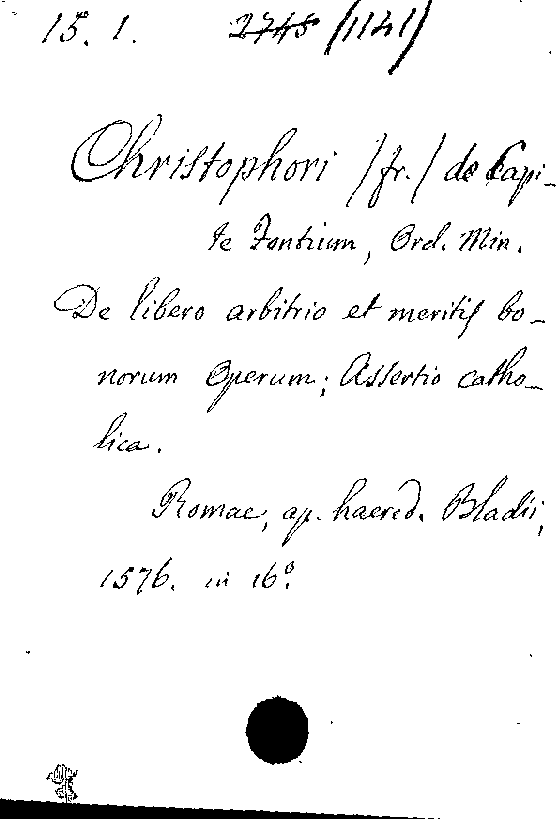 15. 1. 2745 (1141)
Christophori /fr./ de Capi-
te Fontium, Ord. Min.
De libero arbitrio et meritis bo-
norum Operum; Assertio catho-
lica.
Romae, ap. haered. Bladii,
1576. in 16º.